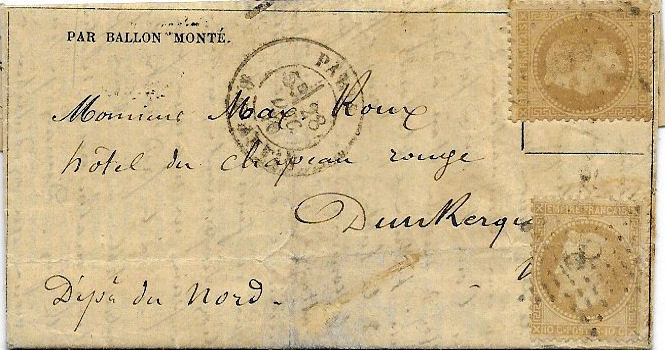 PAR BALLON MONTÉ.
PARIS
Monsieur Max Roux
hôtel du chapeau rouge
Dunkerque
Dépt du Nord.
EMPIRE FRANÇAIS
10 C. POSTES 10 C.